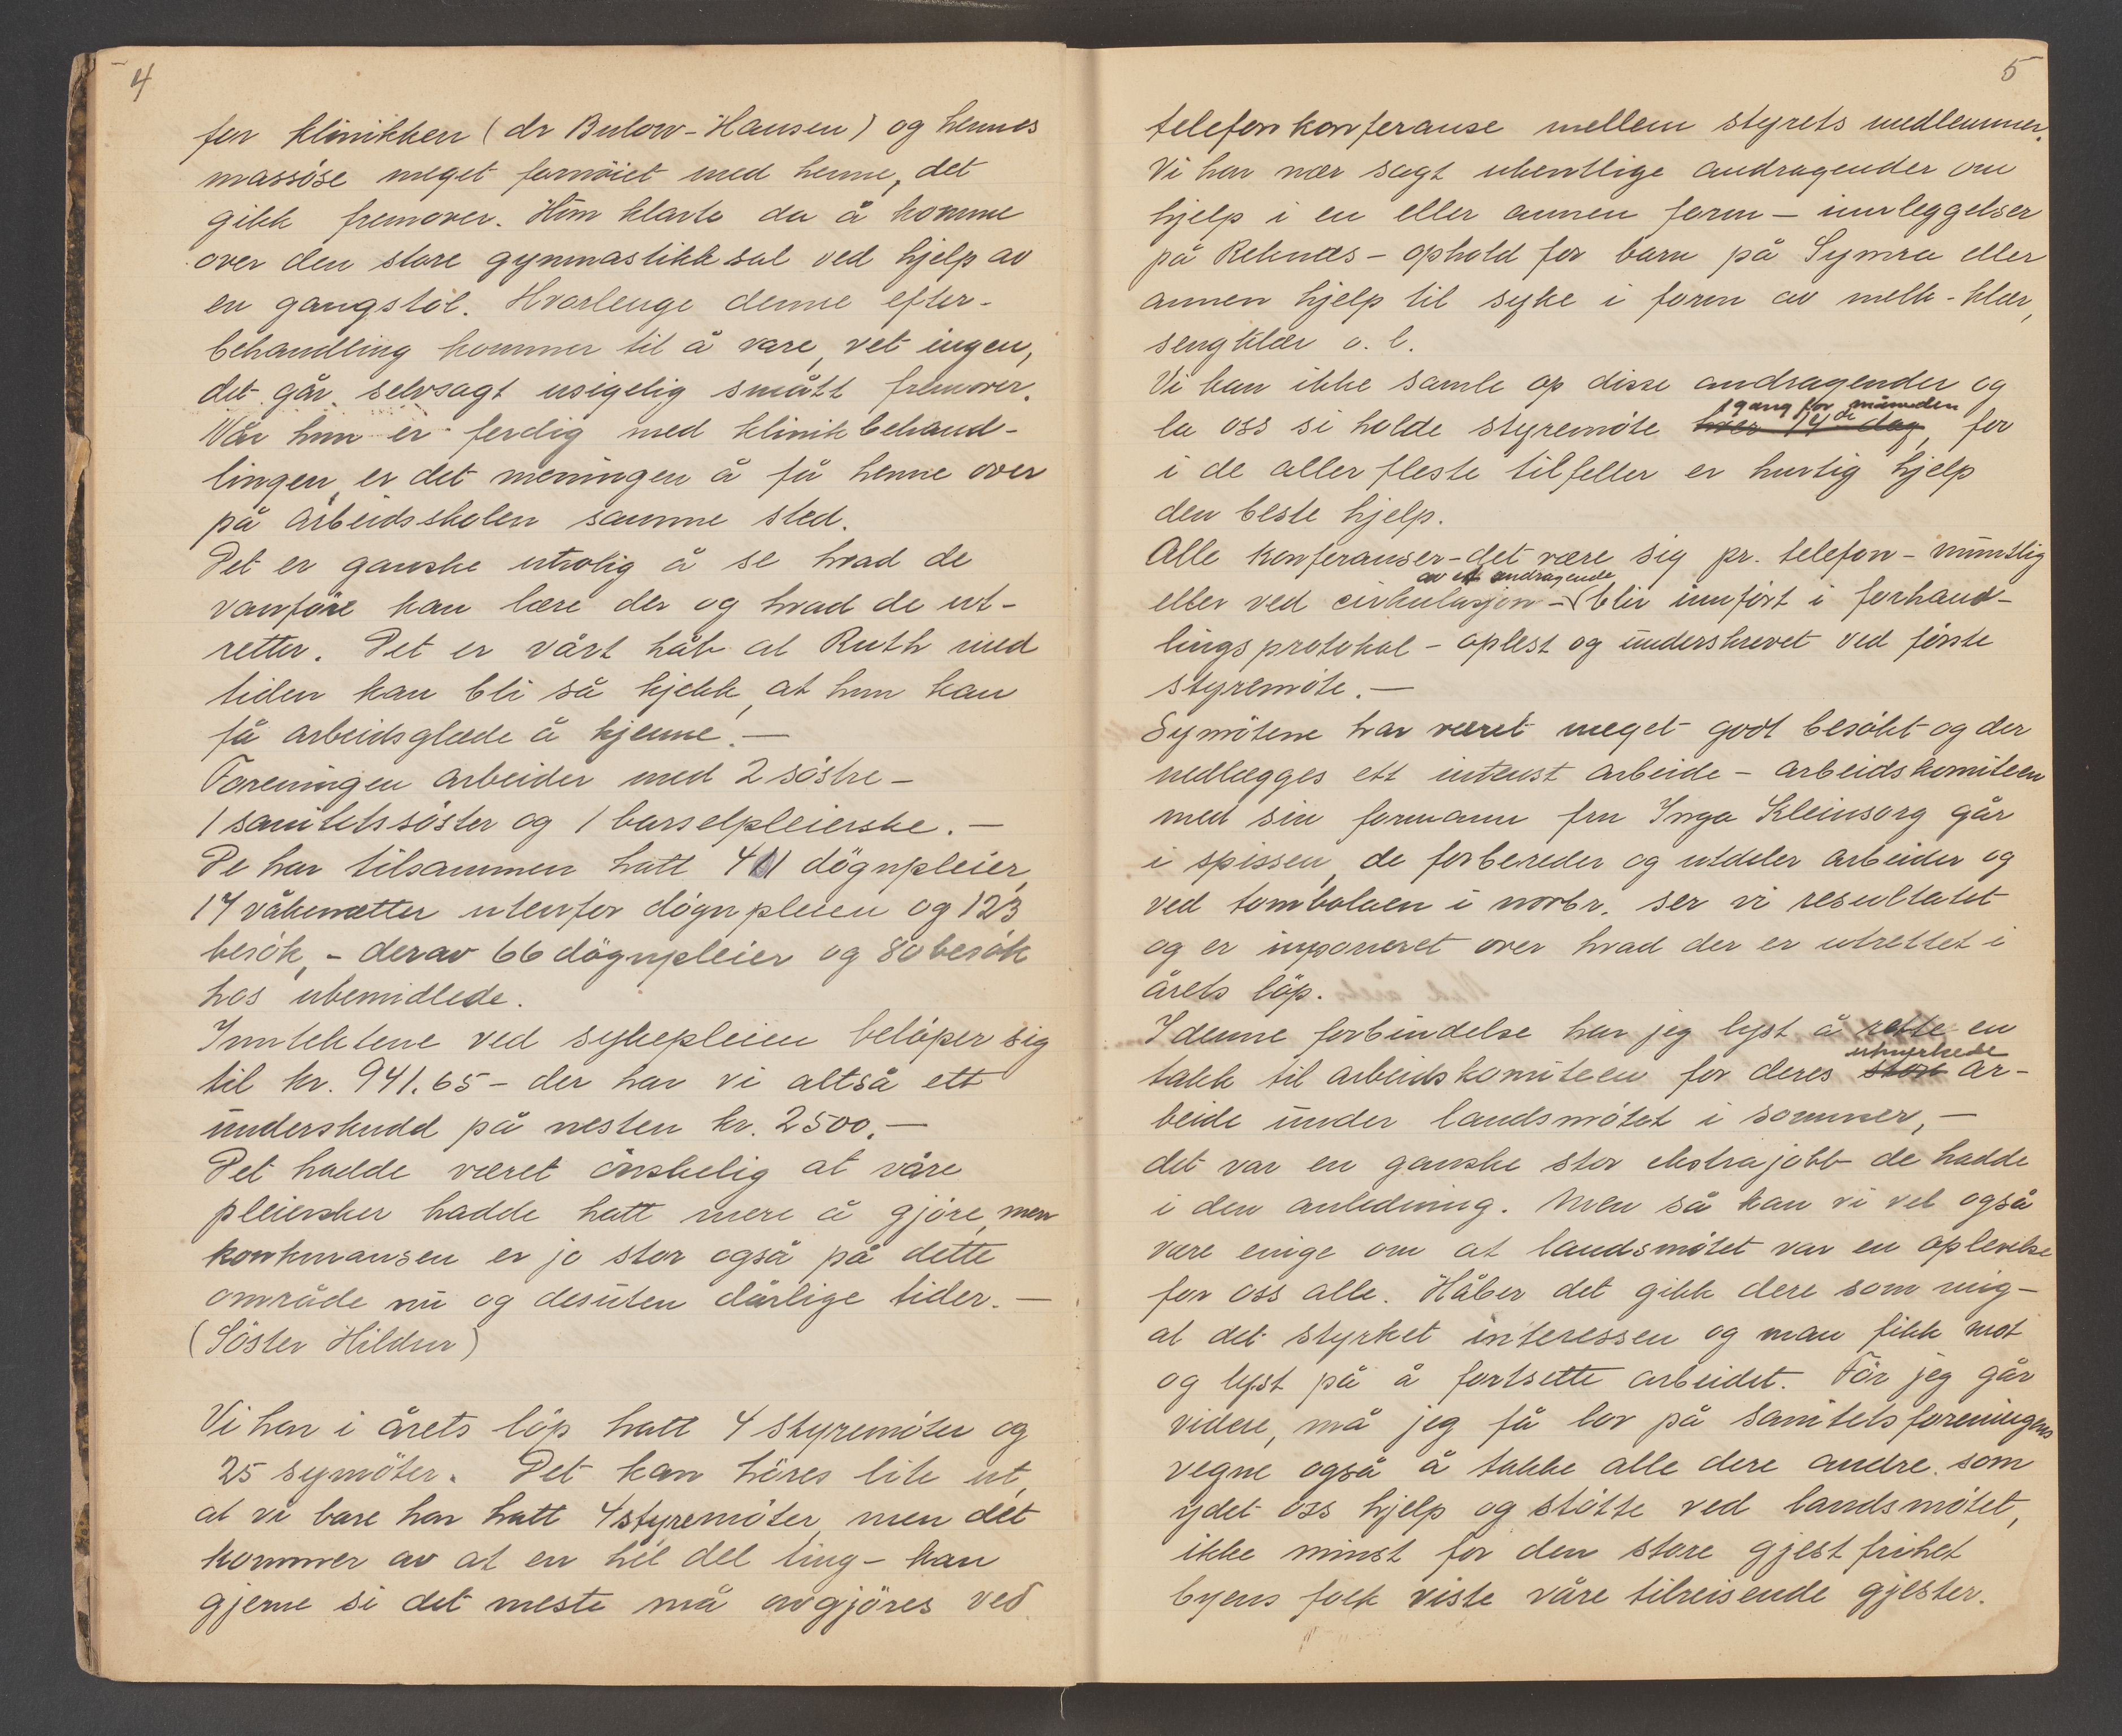 4
for klinikken (dr Bulow-Hansen) og hennes
massöse meget fornöiet med henne, det
gikk fremover. Hun klarte da å komme
over den store gymnastikksal ved hjelp av
en gangstol. Hvorlenge denne efter-
behandling kommer til å vare, vet ingen,
det går selvsagt usigelig smått fremover.
Når hun er ferdig med klinikbehand-
lingen, er det meningen å få henne over
på arbeidsskolen samme sted.
Det er ganske utrolig å se hvad de
vanföre kan lære der og hvad de ut-
retter. Det er vårt håb at Ruth med
tiden kan bli så kjekk, at hun kan
få arbeidsglæde å kjenne. —
Foreningen arbeider med 2 söstre -
1 sanitetssöster og 1 barselpleierske. —
De har tilsammen hatt 411 dögnpleier,
17 våkenetter utenfor dögnpleien og 123
besök, - derav 66 dögnpleier og 80 besök
hos ubemidlede.
Inntektene ved sykepleien belöper sig
til kr. 941.65 - der har vi altså ett
underskudd på nesten kr. 2500. —
Det hadde været önskelig at våre
pleiersker hadde hatt mere å gjöre, men
konkuransen er jo stor også på dette
område nu og desuten dårlige tider. —
(Söster Hildur)
Vi har i årets löp hatt 4 styremöter og
25 symöter. Det kan höres lite ut,
at vi bare har hatt 4 styremöter, men det
kommer av at en hel del ting - kan
gjerne si det meste må avgjöres ved
5
telefonkonferanse mellem styrets medlemmer.
Vi har nær sagt ukentlige andragender om
hjelp i en eller annen form - innleggelser
på Reknes - ophold for barn på Symra eller
annen hjelp til syke i form av melk - klær,
sengklær o. l.
Vi kan ikke samle op disse andragender og
1 gang for måneden
la oss si holde styremöte hver 14de dag, for
i de aller fleste tilfeller er hurtig hjelp
den beste hjelp.
Alle konferanser - det være sig pr. telefon - muntlig
av et andragende
eller ved cirkulasjon - blir innfört i forhand-
lingsprotokol - oplest og underskrevet ved förste
styremöte. —
Symötene har været meget godt besökt og der
nedlægges ett intenst arbeide - arbeidskomiteen
med sin formann fru Inga Kleinsorg går
i spissen, de forbereder og utdeler arbeider og
ved tombolaen i novbr. ser vi resultatet
og er imponeret over hvad der er utrettet i
årets löp.
I denne forbindelse har jeg lyst å rette en
utmerkede
takk til arbeidskomiteen for deres store ar-
beide under landsmötet i sommer, —
det var en ganske stor ekstrajobb de hadde
i den anledning. Men så kan vi vel også
være enige om at landsmötet var en oplevelse
for oss alle. Håber det gikk dere som mig -
at det styrket interessen og man fikk mot
og lyst på å fortsette arbeidet. För jeg går
videre, må jeg få lov på sanitetsforeningens
vegne også å takke alle dere andre som
ydet oss hjelp og stötte ved landsmötet,
ikke minst for den store gjestfrihet
byens folk viste våre tilreisende gjester.